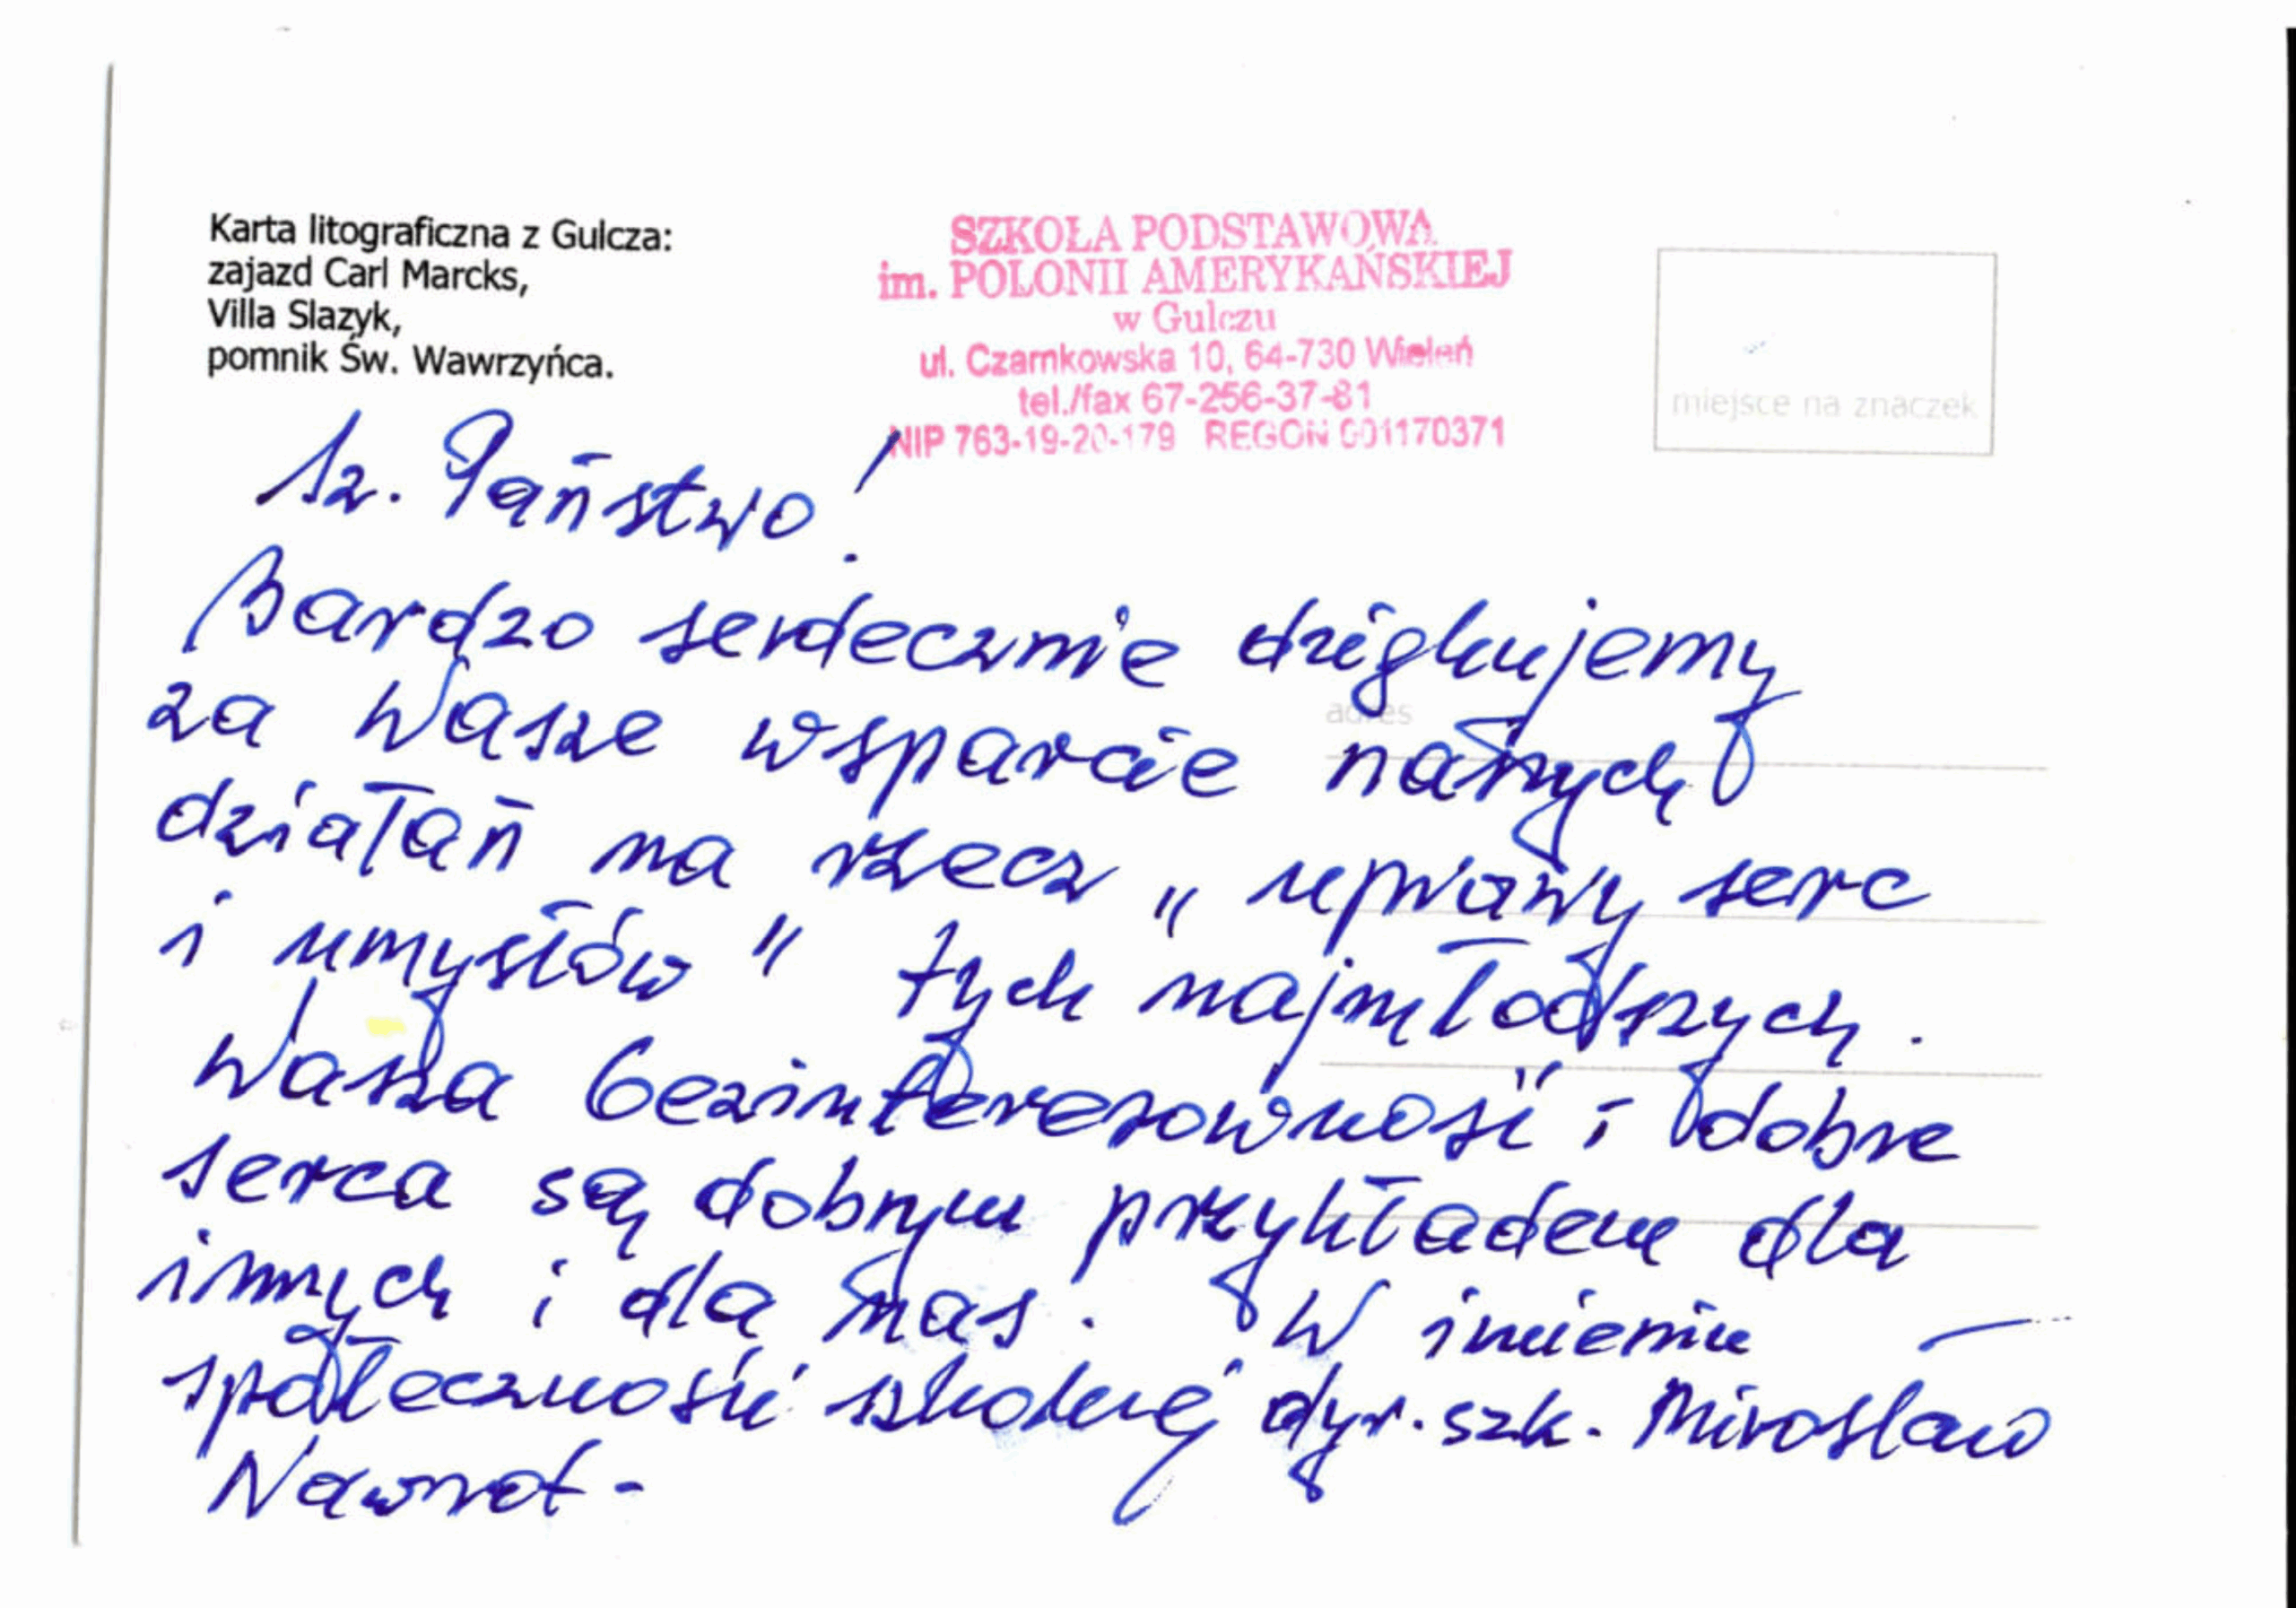 Karta litograficzna z Gulcza:
zajazd Carl Marcks,
Villa Slazyk,
pomnik Św. Wawrzyńca.
SZKOŁA PODSTAWOWA
im. POLONII AMERYKAŃSKIEJ
w Gulczu
ul. Czarnkowska 10, 64-730 Wieleń
tel./fax 67-256-37-81
NIP 763-19-20-179 REGON 001170371
miejsce na znaczek
adres
Sz. Państwo!
Bardzo serdecznie dziękujemy
za Wasze wsparcie naszych
działań na rzecz „uprawy serc
i umysłów" tych najmłodszych.
Wasza bezinteresowność i dobre
serca są dobrym przykładem dla
innych i dla nas. W imieniu
społeczności szkolnej dyr. szk. Mirosław
Nawrot-